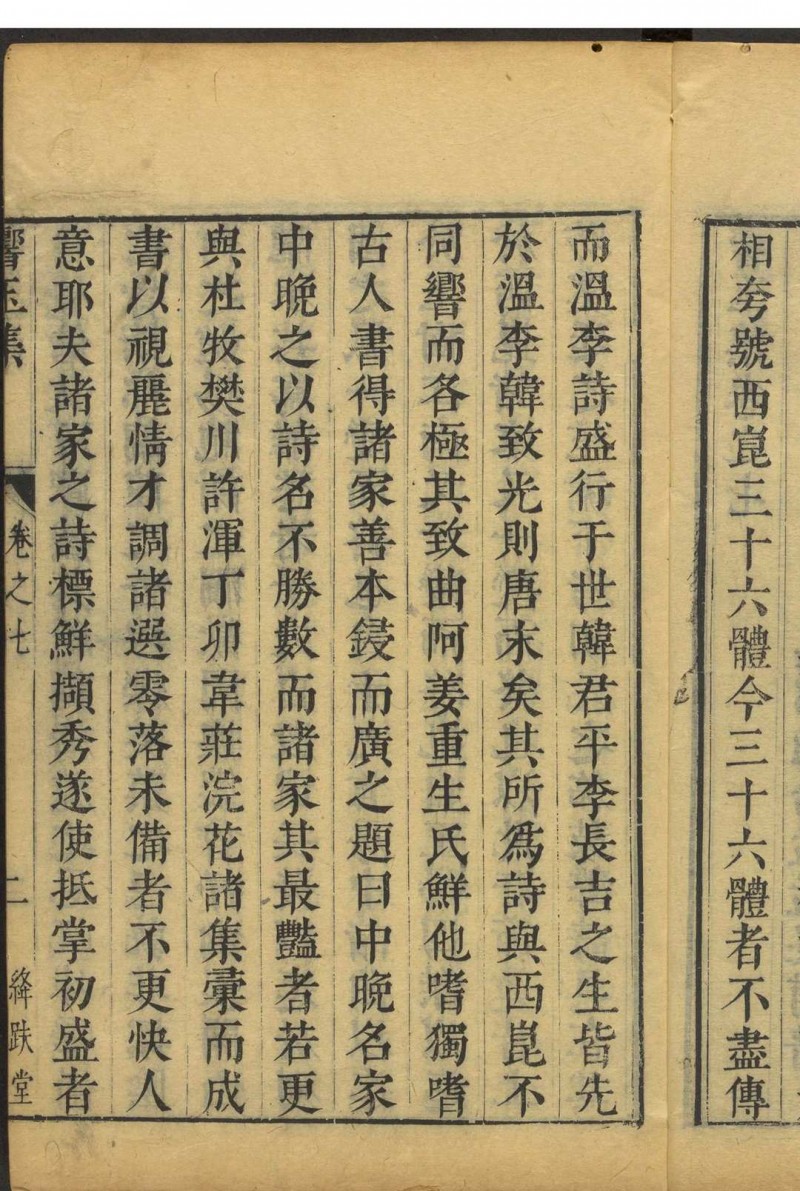 相夸號西崑三十六體今三十六體者不盡傳
而溫李詩盛行于世韓君平李長吉之生皆先
於溫李韓致光則唐末矣其所爲詩與西崑不
同響而各極其致曲阿姜重生氏鮮他嗜獨嗜
古人書得諸家善本鋟而廣之題曰中晩名家
中晩之以詩名不勝數而諸家其最豔者若更
與杜牧樊川許渾丁卯韋莊浣花諸集彙而成
書以視麗情才調諸選零落未備者不更快人
意耶夫諸家之詩標鮮擷秀遂使抵掌初盛者
響玉集
卷之七
二
絳趺堂